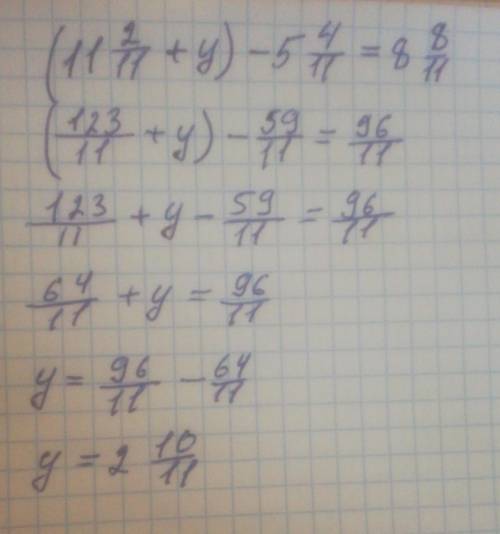 (11 2/11 + y) - 5 4/11 = 8 8/11
(123/11 + y) - 59/11 = 96/11
123/11 + y - 59/11 = 96/11
64/11 + y = 96/11
y = 96/11 - 64/11
y = 2 10/11